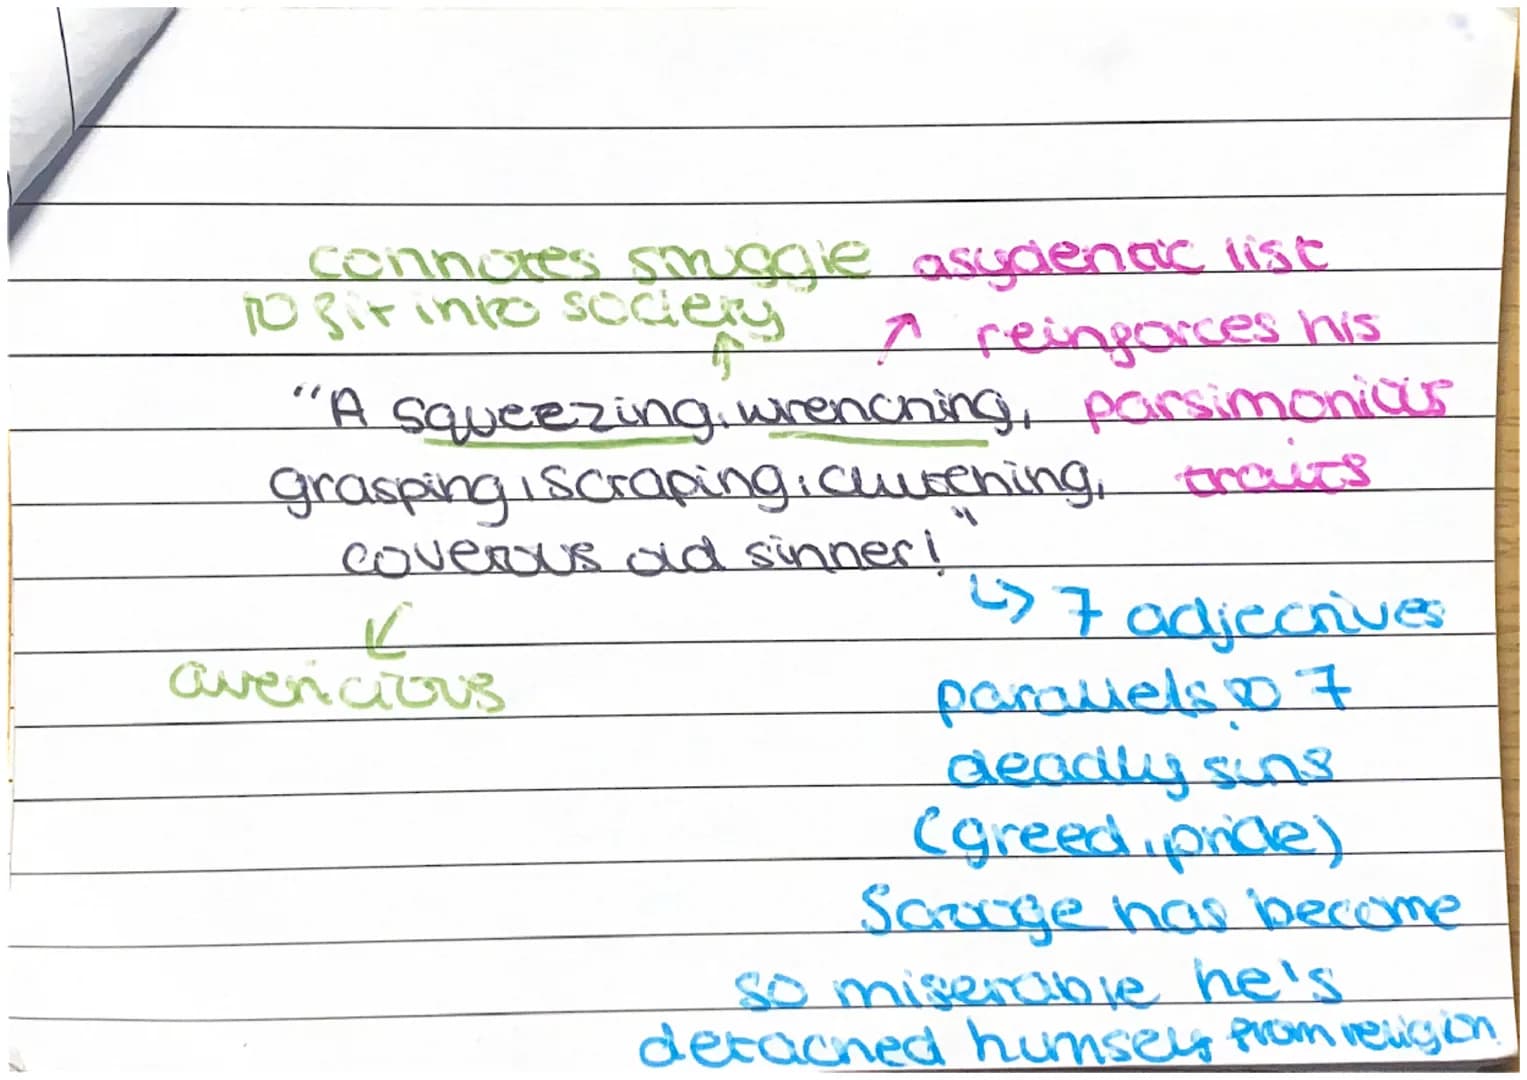 connotes struggle
to fit into society
asydentic list
reinforces his
parsimonious
traits
"A squeezing, wrenching,
grasping, scraping, clutching,
covetous old sinner!"
avericious
↳ 7 adjectives
parallels to 7
deadly sins
(greed, pride)
Scrooge has become
so miserable he's
detached humself from religion